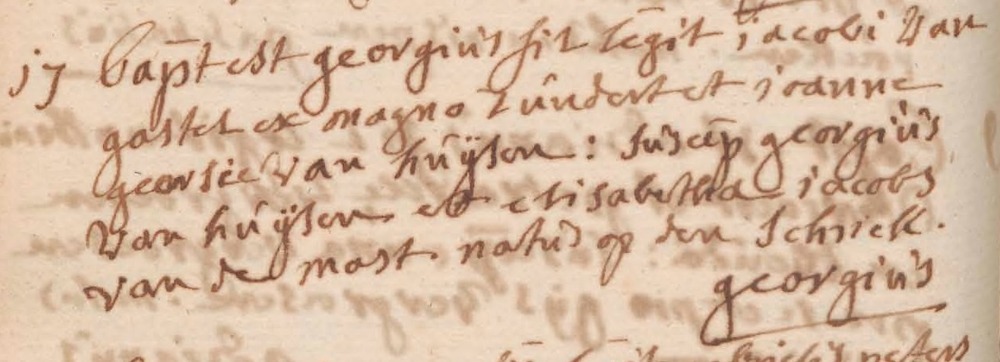 17 bapt est georgius fil legit jacobi van
gastel ex magno Zundert et joanne
geersie van huijsen : suscep georgius
van huijsen et elisabetha jacobs
van de mast natus op den Schriek.
georgius